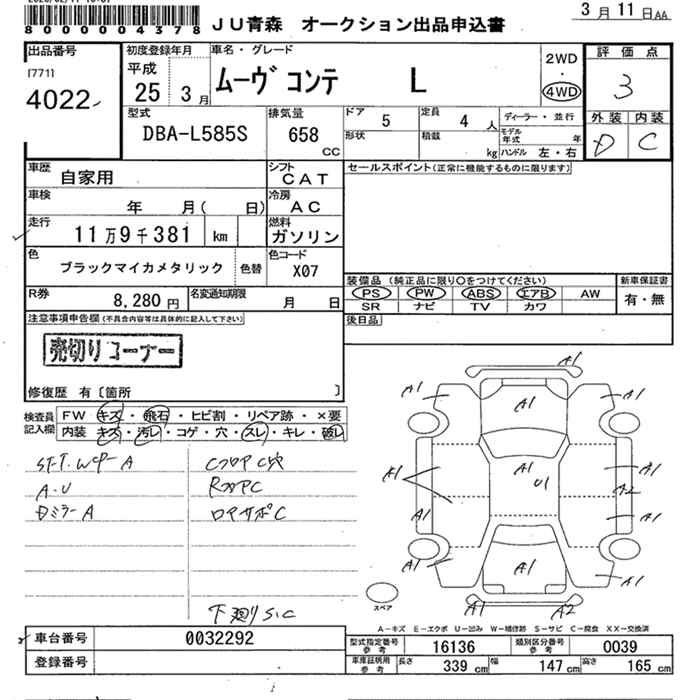 8000004378
JU青森 オークション出品申込書
3月11日AA
出品番号
[771]
4022
初度登録年月
平成
25 3月
車名・グレード
ムーヴ コンテ L
2WD
・
4WD
評価点
3
外装 内装
D C
型式
DBA-L585S
排気量
658
CC
ドア 5
定員 4 人
ディーラー・並行
形状
積載 kg
モデル年式 年
ハンドル 左・右
車歴 自家用
シフト CAT
セールスポイント(正常に機能するものに限ります)
車検 年 月( 日)
冷房 AC
走行 11万9千381 km
燃料 ガソリン
色 ブラックマイカメタリック
色替
色コード X07
装備品(純正品に限り○をつけてください)
PS PW ABS エアB AW
SR ナビ TV カワ
新車保証書
有・無
R券 8,280円
名変通知期限 月 日
後日品
注意事項申告欄(不具合内容等は具体的に記入して下さい)
売切りコーナー
修復歴 有〔箇所 〕
検査員記入欄
FW キズ・飛石・ヒビ割・リペア跡・×要
内装 キズ・汚レ・コゲ・穴・スレ・キレ・破レ
A・U
DミラーA
下廻りS.C
A1
A1
A1
A1
A1
A1
A1
U1
A2
A1
A1
A1
A1
A1
A1
A1
A2
スペア
A－キズ E－エクボ U－凹み W－補修跡 S－サビ C－腐食 XX－交換済
車台番号 0032292
登録番号
型式指定番号 参考 16136
類別区分番号 参考 0039
車庫証明用 参考 長さ 339cm 幅 147cm 高さ 165cm